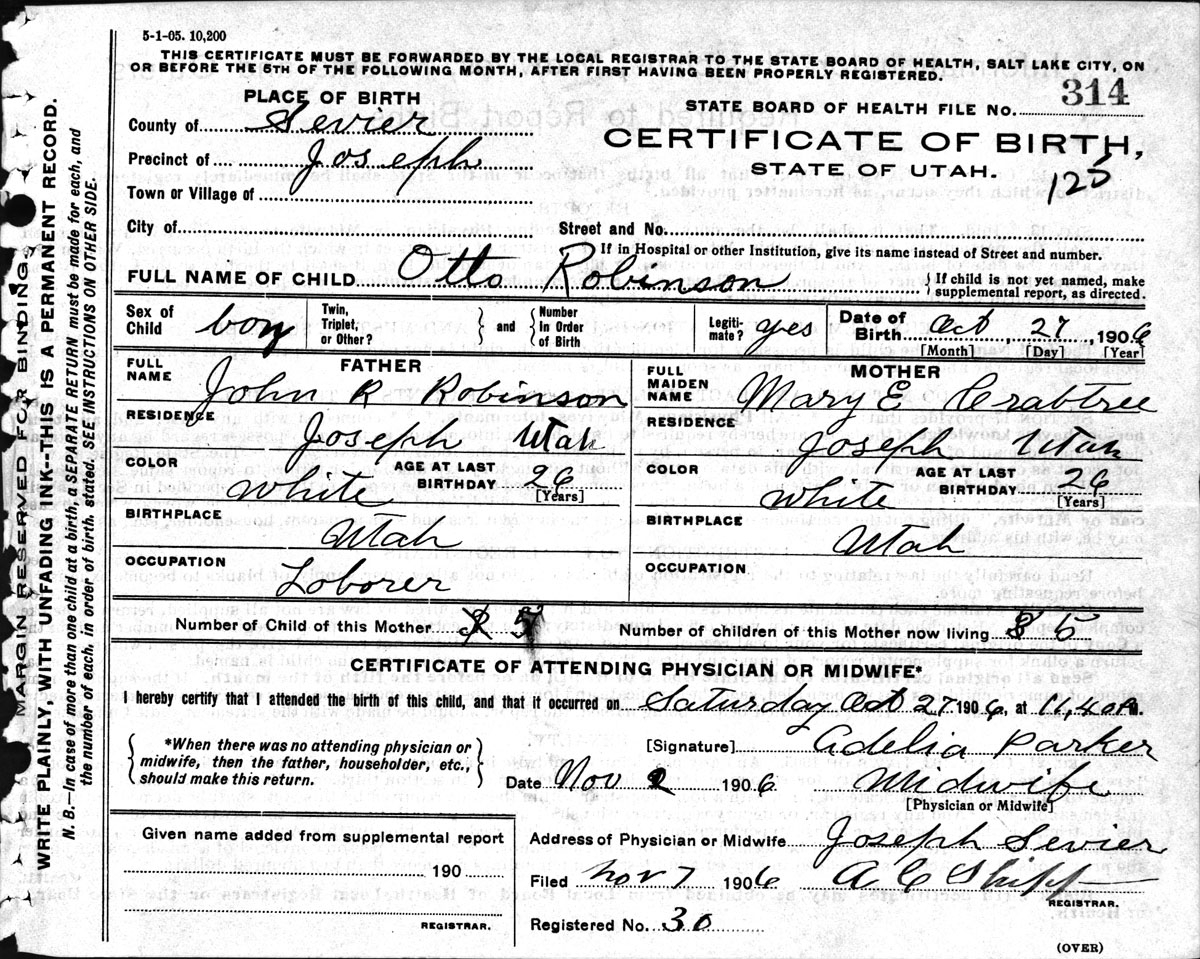 5-1-05. 10,200
THIS CERTIFICATE MUST BE FORWARDED BY THE LOCAL REGISTRAR TO THE STATE BOARD OF HEALTH, SALT LAKE CITY, ON
OR BEFORE THE 5TH OF THE FOLLOWING MONTH, AFTER FIRST HAVING BEEN PROPERLY REGISTERED.
PLACE OF BIRTH
STATE BOARD OF HEALTH FILE NO. 314
County of Sevier
CERTIFICATE OF BIRTH,
Precinct of Joseph
STATE OF UTAH.
125
Town or Village of
City of Street and No.
If in Hospital or other Institution, give its name instead of Street and number.
FULL NAME OF CHILD Otto Robinson { If child is not yet named, make supplemental report, as directed.
Sex of Child boy Twin, Triplet, or Other? } and { Number In Order of Birth Legiti- mate? yes Date of Birth Oct 27, 1906
[Month] [Day] [Year]
FATHER
FULL NAME John R Robinson
RESIDENCE Joseph Utah
COLOR White AGE AT LAST BIRTHDAY 26
[Years]
BIRTHPLACE Utah
OCCUPATION Loborer
MOTHER
FULL MAIDEN NAME Mary E Crabtree
RESIDENCE Joseph Utah
COLOR White AGE AT LAST BIRTHDAY 26
[Years]
BIRTHPLACE Utah
OCCUPATION
Number of Child of this Mother 5 Number of children of this Mother now living 5
CERTIFICATE OF ATTENDING PHYSICIAN OR MIDWIFE.*
I hereby certify that I attended the birth of this child, and that it occurred on Saturday Oct 27 1906, at 11,40 M.
{ *When there was no attending physician or
midwife, then the father, householder, etc.,
should make this return. }
[Signature] Adelia Parker
Date Nov 2 1906 Midwife
[Physician or Midwife]
Given name added from supplemental report
190
REGISTRAR.
Address of Physician or Midwife Joseph Sevier
Filed Nov 7 1906 A C Shipp
REGISTRAR.
Registered No. 30
(OVER)
MARGIN RESERVED FOR BINDING
WRITE PLAINLY, WITH UNFADING INK--THIS IS A PERMANENT RECORD.
N. B.—In case of more than one child at a birth, a SEPARATE RETURN must be made for each, and
the number of each, in order of birth, stated. SEE INSTRUCTIONS ON OTHER SIDE.